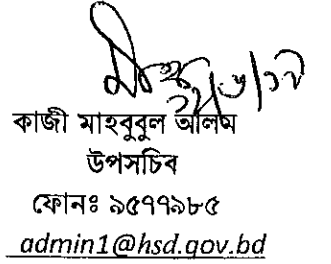 কাজী মাহবুবুল আলম
উপসচিব
ফোনঃ ৯৫৭৭৯৮৫
admin1@hsd.gov.bd